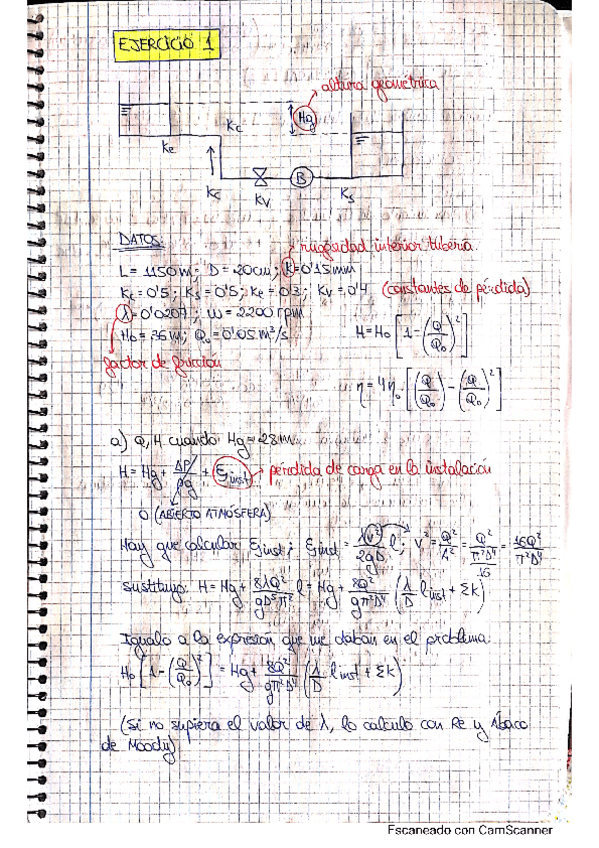 EJERCICIO 1
altura geométrica
Hg
Kc
Ke
Kc
Kv
B
Ks
DATOS:
rugosidad interior tubería
L = 1150m; D = 20cm; K=0'15mm
Kc=0'5; Ks=0'5; Ke=0'3; Kv=0'4 (constantes de pérdida)
λ=0'0207; ω=2200rpm
H0=36m; Q0=0'05m³/s H=H0[1-(Q/Q0)²]
factor de fricción
η=4η0·[(Q/Q0)-(Q/Q0)²]
a) Q, H cuando Hg=28m
H=Hg+ΔP/ρg+ξinst → pérdida de carga en la instalación
0 (ABIERTO ATMÓSFERA)
Hay que calcular ξinst; ξinst=λv²/2gD l; v²=Q²/A²=Q²/(π²D⁴/16)=16Q²/π²D⁴
sustituyo: H=Hg+8λQ²/gD⁵π² l=Hg+8Q²/gπ²D⁴(λ/D linst+Σk)
Igualo a la expresión que me daban en el problema:
H0[1-(Q/Q0)²]=Hg+8Q²/gπ²D⁴(λ/D linst+Σk)
(Si no supiera el valor de λ, lo calculo con Re y Ábaco
de Moody)
Escaneado con CamScanner